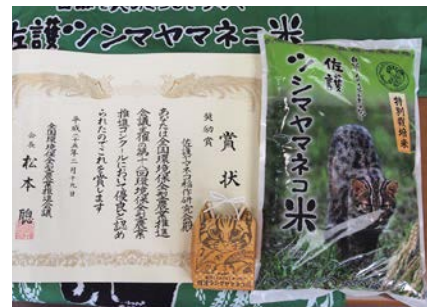 佐護ツシマヤマネコ米
賞状
奨励賞
佐護ヤマネコ稲作研究会殿
あなたは全国環境保全型農業推進
会議主催の第十八回環境保全型農業
推進コンクールにおいて優良と認め
られたのでこれを賞します
平成二十五年二月十九日
全国環境保全型農業推進会議
会長 松本聰
佐護
ツシマヤマネコ米
特別栽培米